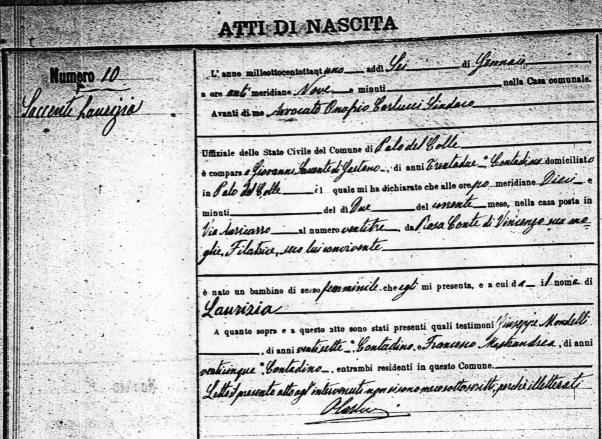 ATTI DI NASCITA
Numero 10
Saccente Laurizia
L'anno milleottocentottantuno addì Sei di Gennaio
a ore anti meridiane Nove e minuti nella Casa comunale.
Avanti di me Avvocato Onofrio Carlucci Sindaco
Uffiziale dello Stato Civile del Comune di Palo del Colle
è comparso Giovanni Saccente di Gaetano, di anni Trentadue Contadino domiciliato
in Palo del Colle il quale mi ha dichiarato che alle ore po meridiane Dieci e
minuti del dì Due del corrente mese, nella casa posta in
Via Auricarro al numero ventitre, da Rosa Conte di Vincenzo sua mo-
glie, Filatrice, seco lui convivente
è nato un bambino di sesso femminile che egli mi presenta, e a cui dà il nome di
Laurizia
A quanto sopra e a questo atto sono stati presenti quali testimoni Giuseppe Mondelli
, di anni ventisette Contadino, e Francesco Mastrandrea, di anni
venticinque Contadino, entrambi residenti in questo Comune.
Letto il presente atto agl'intervenuti non si sono meco sottoscritti, perchè illetterati